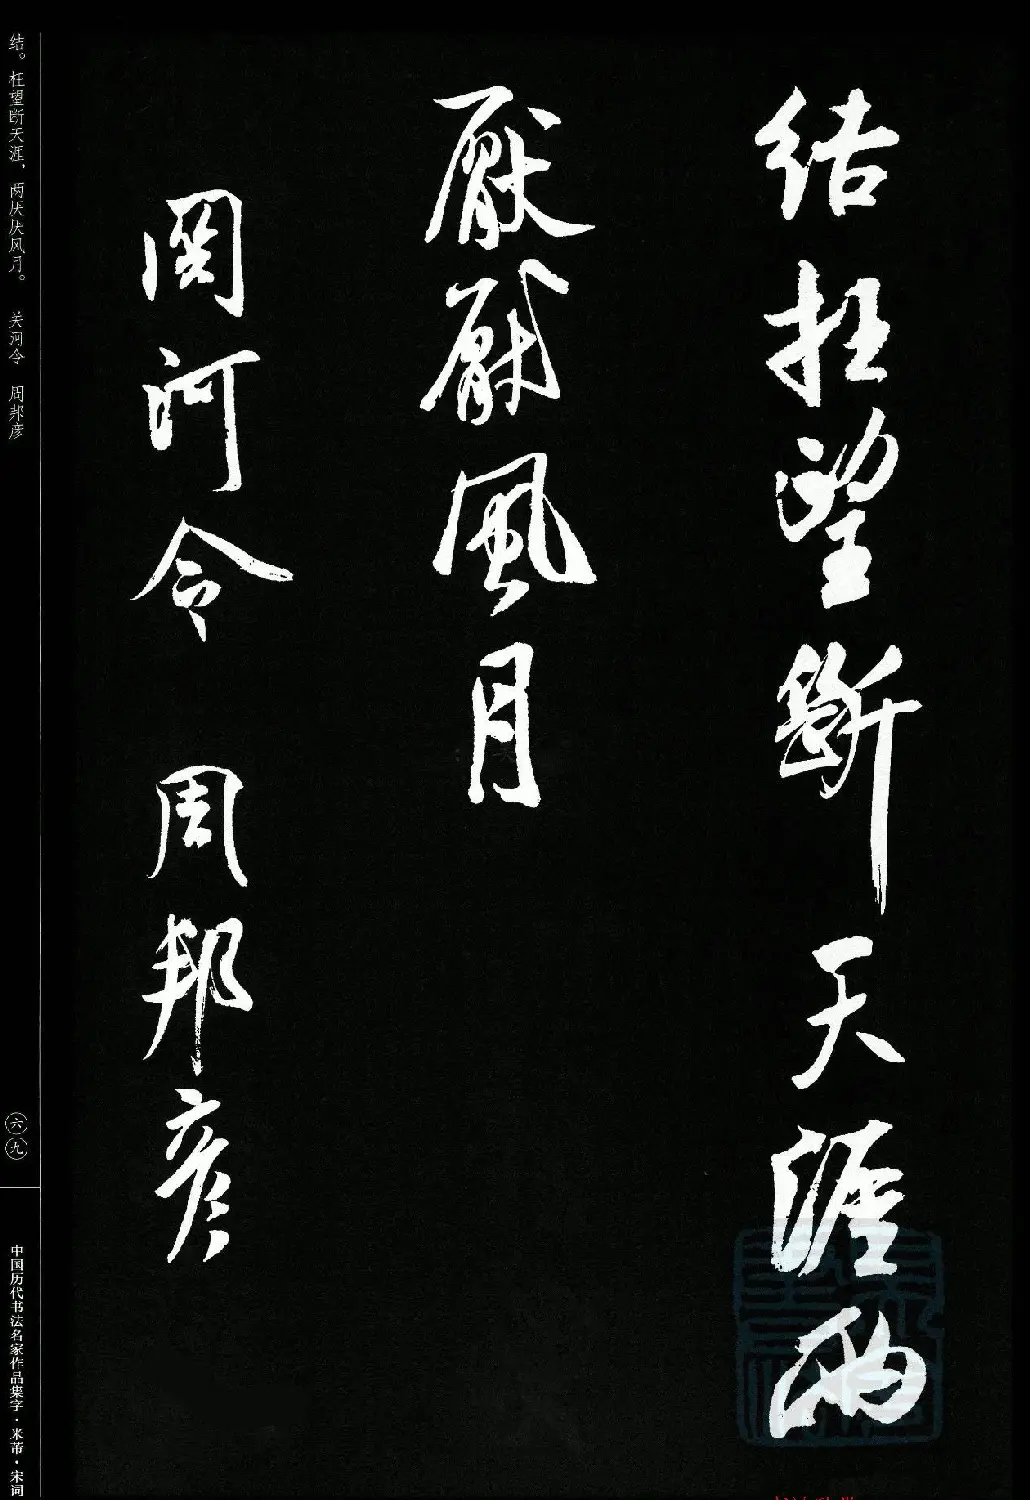 结枉望斷天涯兩
厭厭風月
関河令 周邦彦
结。枉望断天涯，两厌厌风月。 关河令 周邦彦
六九
中国历代书法名家作品集字·米芾·宋词